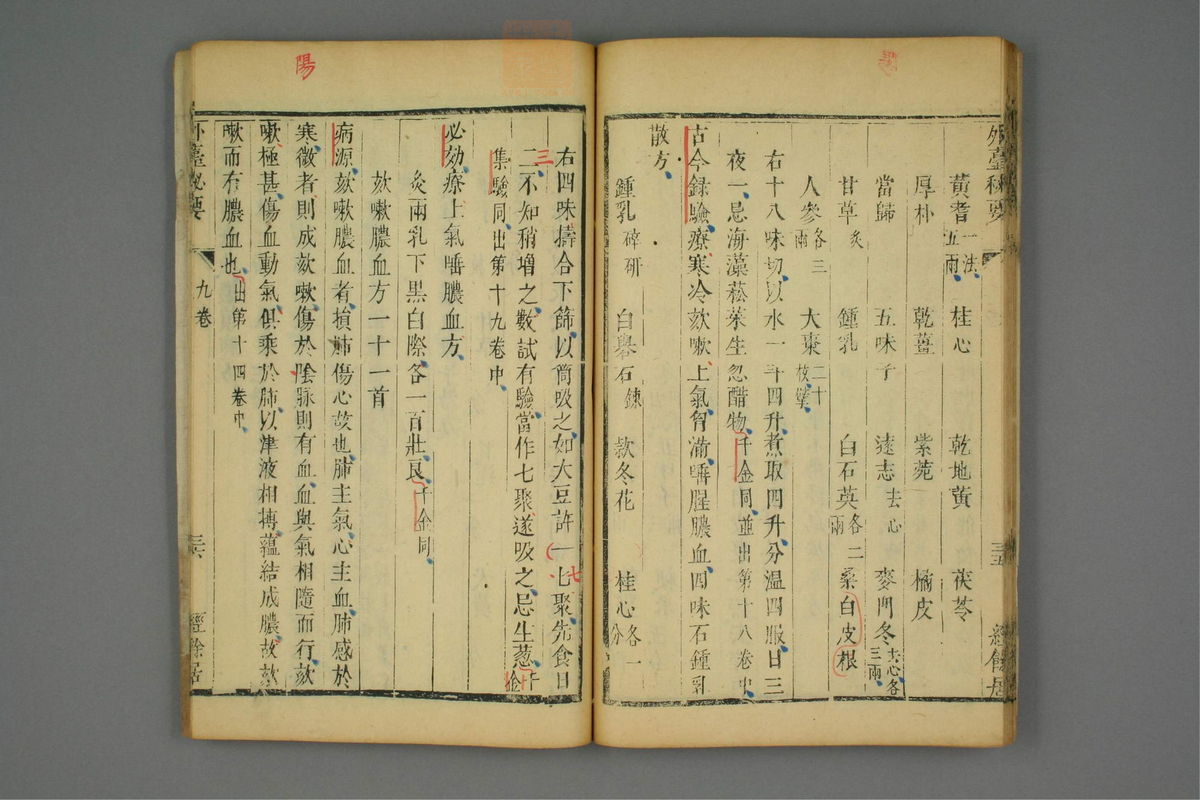 外臺秘要
黃耆一法五兩 桂心 乾地黃 茯苓
厚朴 乾薑 紫菀 橘皮
當歸 五味子 遠志去心 麥門冬去心各三兩
甘草炙 鍾乳 白石英各二兩 桑白皮根
人參各三兩 大棗二十枚擘
右十八味切以水一斗四升煮取四升分温四服日三
夜一忌海藻菘菜生忽醋物千金同並出第十八卷中
古今録驗療寒冷欬嗽上氣胷滿唾腥膿血四味石鍾乳
散方
鍾乳碎研 白礬石鍊 款冬花 桂心各一分
三五
經餘居
右四味擣合下篩以筒吸之如大豆許一七聚先食日
三
七
二不知稍增之數試有驗當作七聚遂吸之忌生葱千金
集驗同出第十九卷中
必効療上氣唾膿血方
灸兩乳下黒白際各一百壯良千金同
欬嗽膿血方一十一首
病源欬嗽膿血者損肺傷心故也肺主氣心主血肺感於
寒微者則成欬嗽傷於陰脉則有血血與氣相隨而行欬
嗽極甚傷血動氣俱乘於肺以津液相搏蘊結成膿故欬
嗽而有膿血也出第十四卷中
外臺秘要
九卷
三六
經餘居
陽